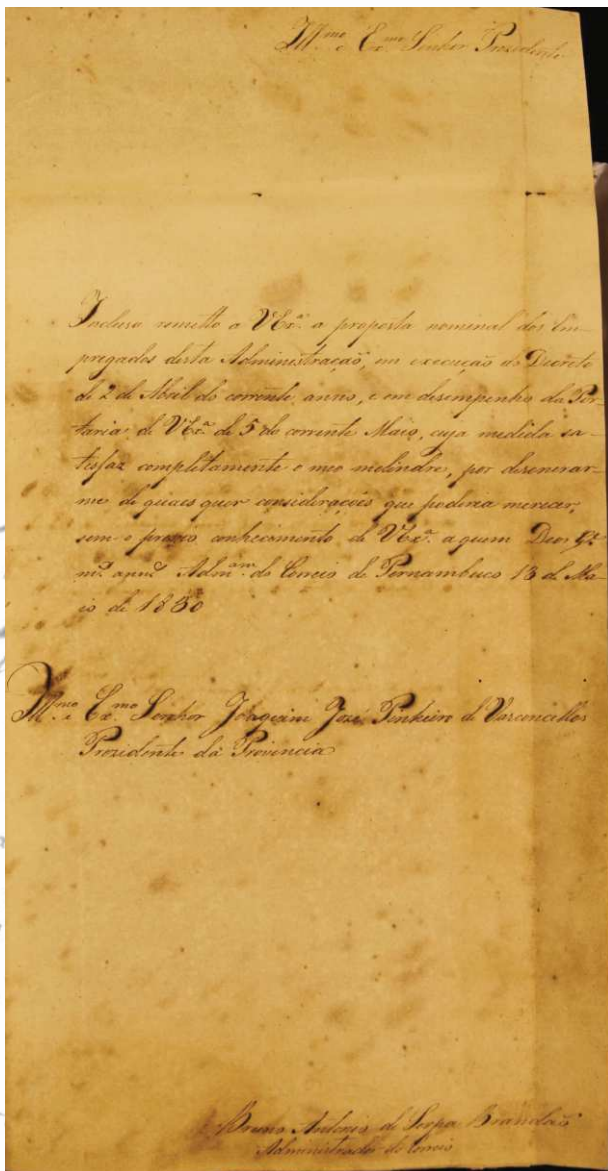 Ill.mo e Ex.mo Senhor Prezidente
Incluso remetto a VEx.ª a proposta nominal dos Em-
pregados desta Administração, em execução do Decreto
de 2 de Abril do corrente anno, e em desempenho da Por-
taria de VEx.ª de 5 do corrente Maio, cuja medida sa-
tisfaz completamente o meo melindre, por desonerar-
me de quaes quer considerações que poderia merecer,
sem o previo conhecimento de VEx.ª a quem Deos G.e
m.s ann.s Adm.am do Correio de Pernambuco 13 de Ma-
io de 1830
Ill.mo e Ex.mo Senhor Joaquim José Pinheiro de Vasconcellos
Prezidente da Provincia
Bruno Antonio de Serpa Brandão
Administrador do Correio